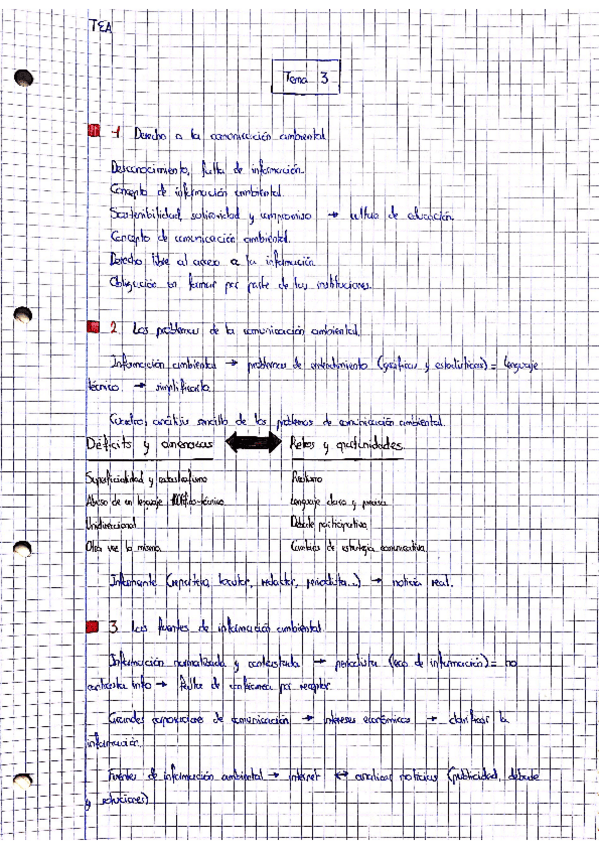 TEA
Tema 3
1 Derecho a la comunicación ambiental
Desconocimiento, falta de información.
Concepto de información ambiental.
Sostenibilidad, solidaridad y compromiso → de educación.
Concepto de comunicación ambiental.
Derecho libre al acceso a la información
Obligación en formar por parte de las instituciones.
2 Los problemas de la comunicación ambiental
Información ambiental → problemas de entendimiento (gráficas y estadísticas) = lenguaje
técnico. → simplificarlo
Cuadro, análisis sencillo de los problemas de comunicación ambiental.
Déficits y amenazas ↔ Retos y oportunidades
Superficialidad y catastrofismo Realismo
Abuso de un lenguaje Lenguaje claro y preciso
Unidireccional Debate participativo
Otra vez lo mismo Cambios de estrategia comunicativa
Informante (reportero, locutor, redactor, periodista...) → noticia real.
3 Las fuentes de información ambiental
Información normalizada y contrastada → periodista (eco de información) = no
contrasta info → falta de confianza por receptor
Grandes corporaciones de comunicación → intereses económicos → la
información.
Fuentes de información ambiental → internet ↔ analizar noticias (publicidad, debate
y soluciones)